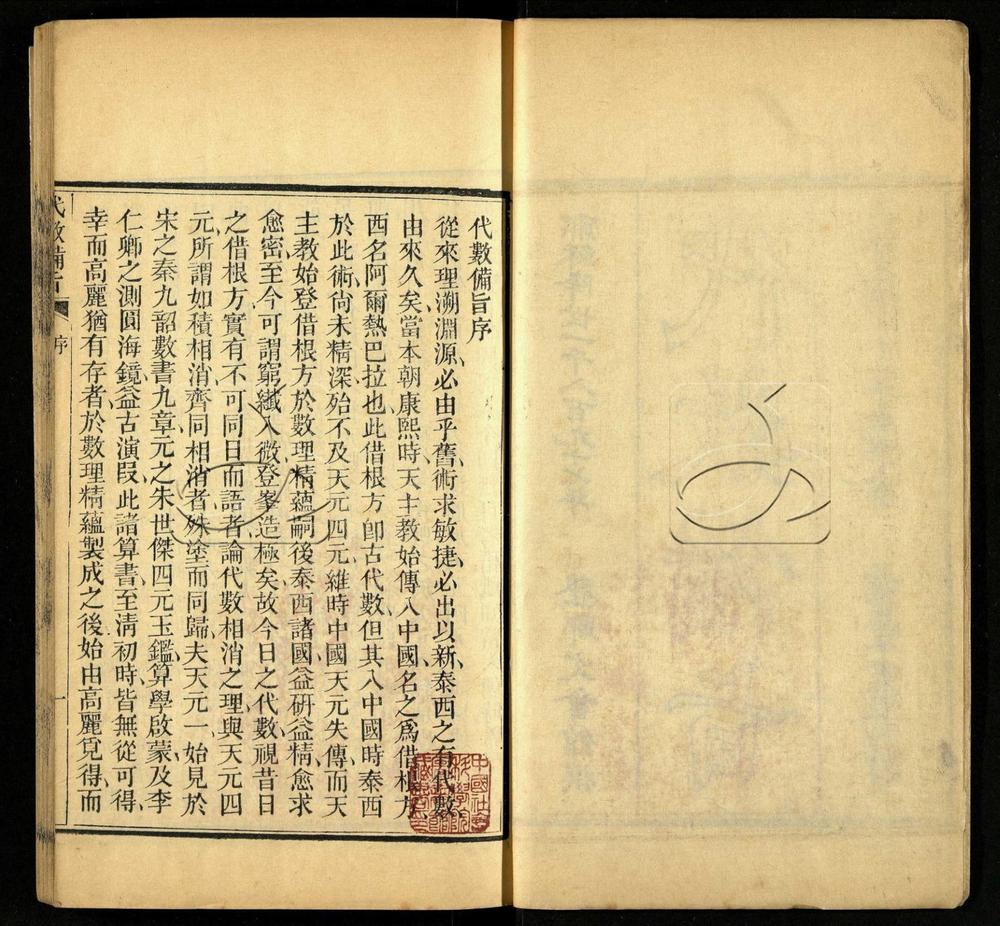 代數備旨序
從來理溯淵源必由乎舊術求敏捷必出以新泰西之有代數
由來久矣當本朝康熙時天主教始傳入中國名之爲借根方
西名阿爾熱巴拉也此借根方卽古代數但其入中國時泰西
於此術尙未精深殆不及天元四元維時中國天元失傳而天
主教始登借根方於數理精蘊嗣後泰西諸國益研益精愈求
愈密至今可謂窮纖入微登峯造極矣故今日之代數視昔日
之借根方實有不可同日而語者論代數相消之理與天元四
元所謂如積相消齊同相消者殊塗而同歸夫天元一始見於
宋之秦九韶數書九章元之朱世傑四元玉鑑算學啟蒙及李
仁卿之測圓海鏡益古演段此諸算書至淸初時皆無從可得
幸而高麗猶有存者於數理精蘊製成之後始由高麗覓得而
代數備旨 序 一
中國社會
科學院